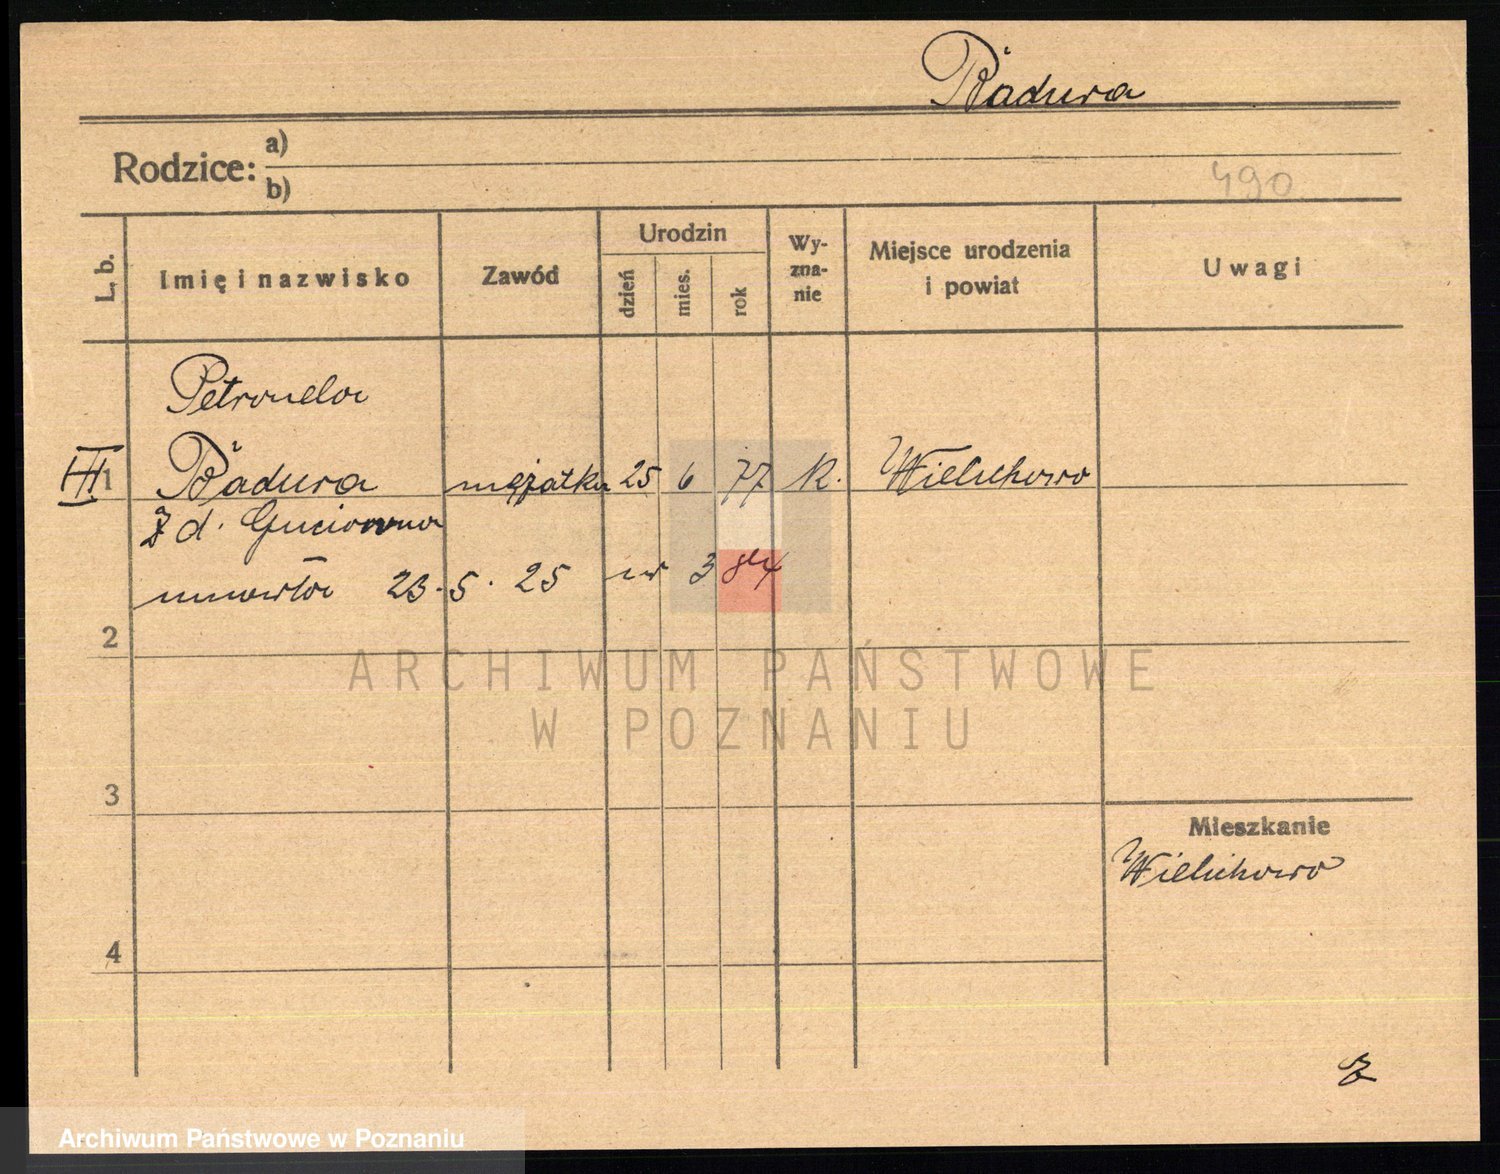 Badura
Rodzice: a)
b)
490
L. b.
Imię i nazwisko
Zawód
Urodzin
dzień
mies.
rok
Wy-
zna-
nie
Miejsce urodzenia
i powiat
Uwagi
Petronela
III 1 Badura mężatka 25 6 77 K. Wielichowo
z d. Guciowna
umarła 23. 5. 25 nr 384
2
ARCHIWUM PAŃSTWOWE
W POZNANIU
3
Mieszkanie
Wielichowo
4
Ż
Archiwum Państwowe w Poznaniu